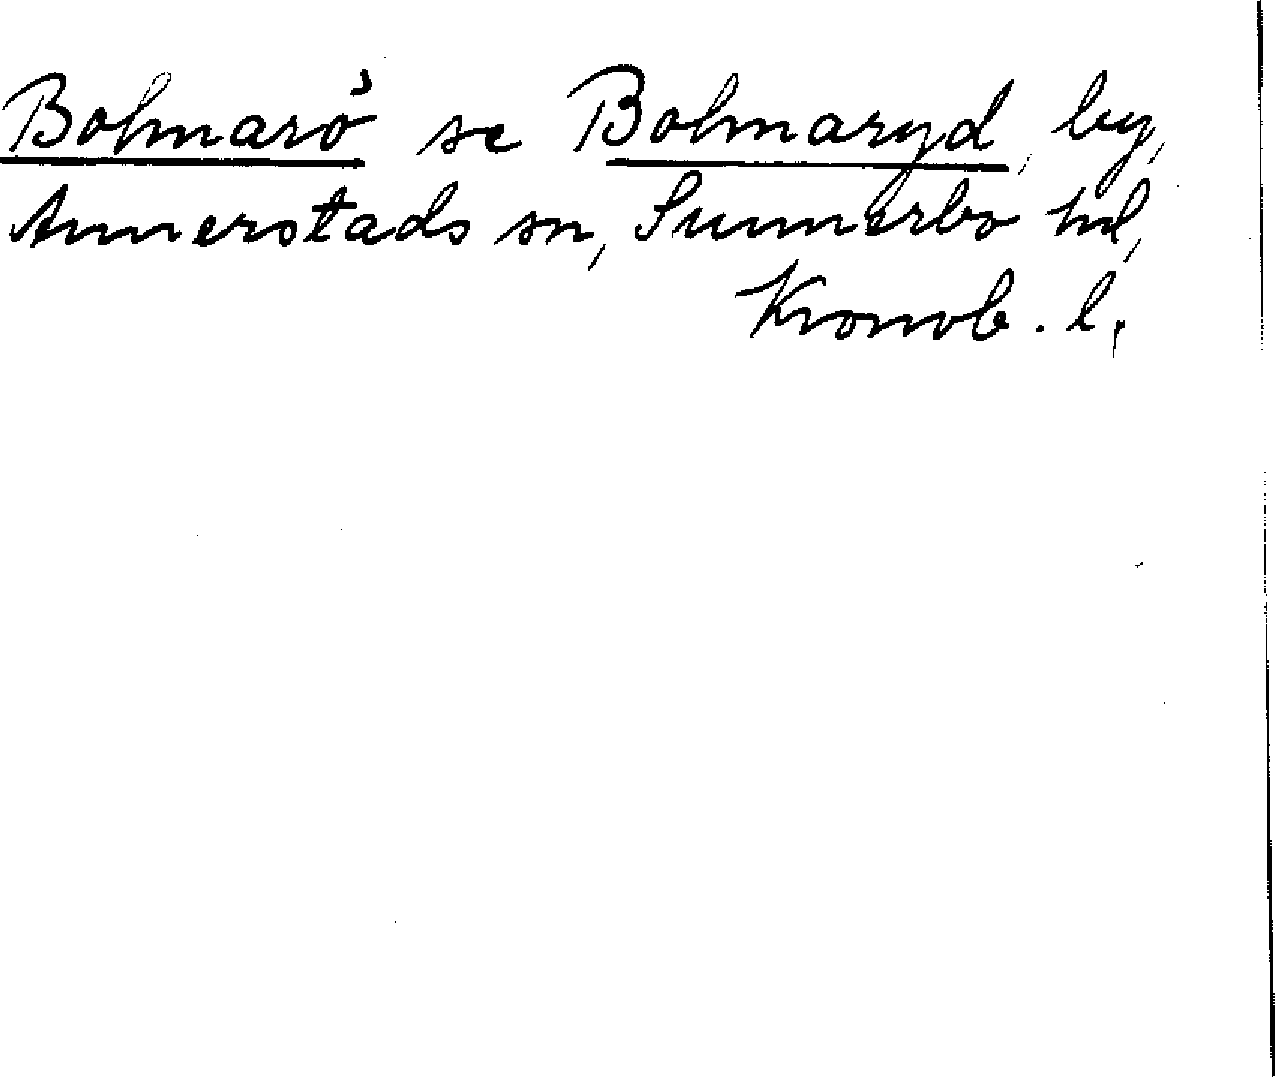 Bolmarö se Bolmaryd, by,
Annerstads sn, Sunnerbo hd,
Kronob. l.